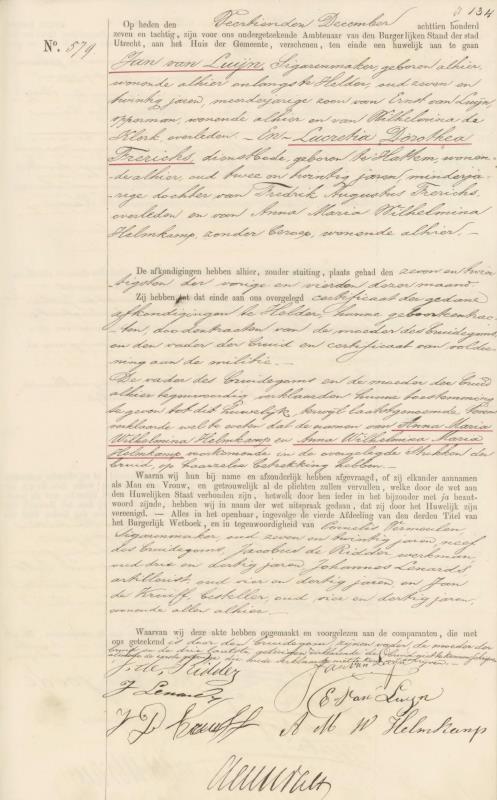 134
Op heden den Veertienden December achttien honderd
zeven en tachtig, zijn voor ons ondergeteekende Ambtenaar van den Burgerlijken Stand der stad
Utrecht, aan het Huis der Gemeente, verschenen, ten einde een huwelijk aan te gaan
N°. 579
Jan van Luijn, Sigarenmaker, geboren alhier,
wonende alhier onlangs te Helder, oud zeven en
twintig jaren, meerderjarige zoon van Ernst van Luijn,
opperman, wonende alhier en van Wilhelmina de
Klerk, overleden. – En – Lucretia Dorothea
Frerichs, dienstbode, geboren te Hattem, wonen-
de alhier, oud twee en twintig jaren, minderja-
rige dochter van Fredrik Augustus Frerichs,
overleden en van Anna Maria Wilhelmina
Helmkamp, zonder beroep, wonende alhier. –
De afkondigingen hebben alhier, zonder stuiting, plaats gehad den zeven en twin
tigsten der vorige en vierden dezer maand
Zij hebben tot dat einde aan ons overgelegd certificaat der gedane
afkondigingen te Helder, hunne geboortextrac-
ten, doodextracten van de moeder des bruidegoms
en den vader der bruid en certificaat van voldoe-
ning aan de militie. –
De vader des bruidegoms en de moeder der bruid
alhier tegenwoordig verklaarden hunne toestemming
te geven tot dit huwelijk, terwijl laatstgenoemde
verklaarde wel te weten dat de namen van Anna Maria
Wilhelmina Helmkamp en Anna Wilhelmina Maria
Helmkamp voorkomende in de overgelegde stukken der
bruid, op haarzelve betrekking hebben. –
Waarna wij hun bij name en afzonderlijk hebben afgevraagd, of zij elkander aannamen
als Man en Vrouw, en getrouwelijk al de plichten zullen vervullen, welke door de wet aan
den Huwelijken Staat verbonden zijn, hetwelk door hen ieder in het bijzonder met ja beant-
woord zijnde, hebben wij in naam der wet uitspraak gedaan, dat zij door het Huwelijk zijn
vereenigd. — Alles in het openbaar, ingevolge de vierde Afdeeling van den derden Titel van
het Burgerlijk Wetboek, en in tegenwoordigheid van Cornelis Vermeulen
Sigarenmaker, oud zeven en twintig jaren, neef
des bruidegoms, Jacobus de Ridder, werkman,
oud drie en dertig jaren, Johannes Lenards
artillerist, oud vier en dertig jaren, en Jan
de Kruijff, besteller, oud vier en dertig jaren,
wonende allen alhier. –
Waarvan wij deze akte hebben opgemaakt en voorgelezen aan de comparanten, die met
ons geteekend is door den bruidegom, zijnen vader, de moeder der
bruid en de drie laatste getuigen, verklarende de
J. de Ridder
J Lenards
E Van Luijn
J D Kruijff
A M W Helmkamp